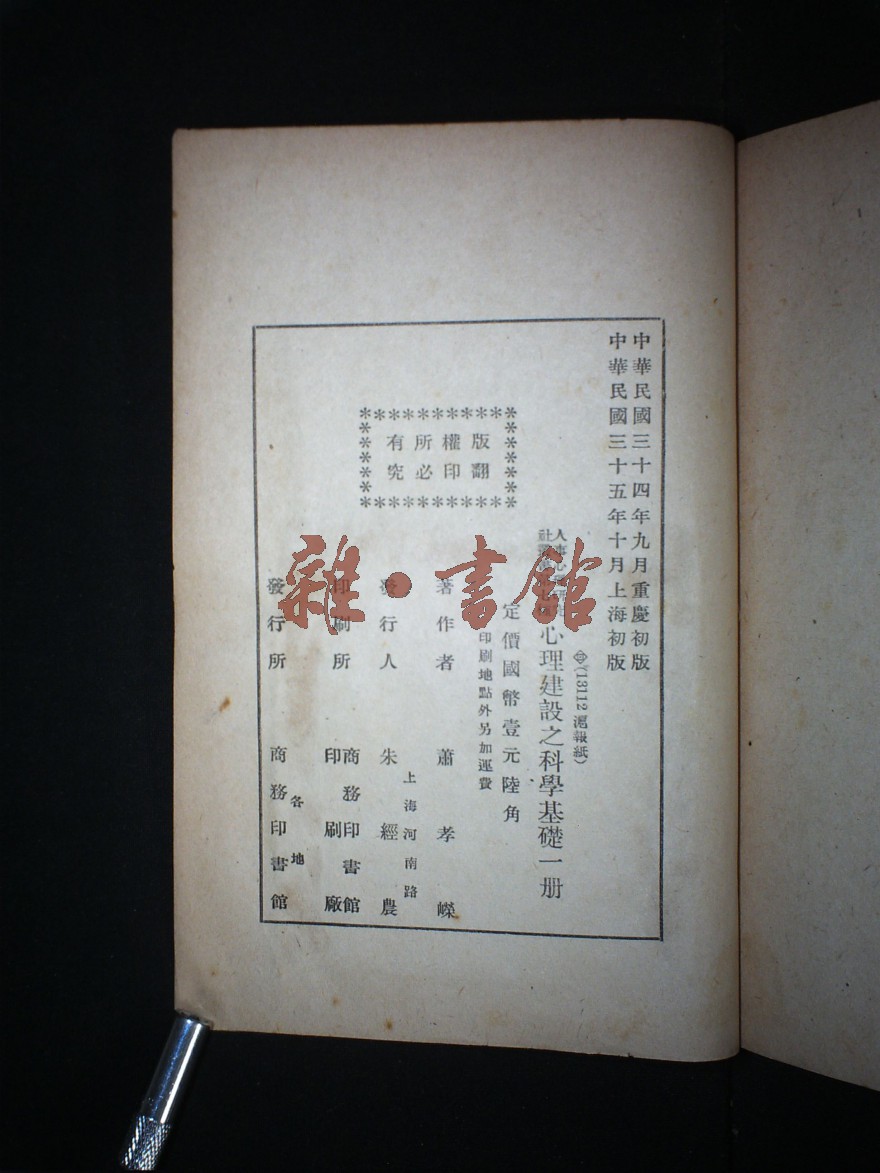 中華民國三十四年九月重慶初版
中華民國三十五年十月上海初版
(13112滬報紙)
心理建設之科學基礎一册
定價國幣壹元陸角
印刷地點外另加運費
版權所有
翻印必究
著作者 蕭孝嶸
發行人 朱經農
上海河南路
印刷所 商務印書館
印刷廠
發行所 商務印書館
各地
雜·書館